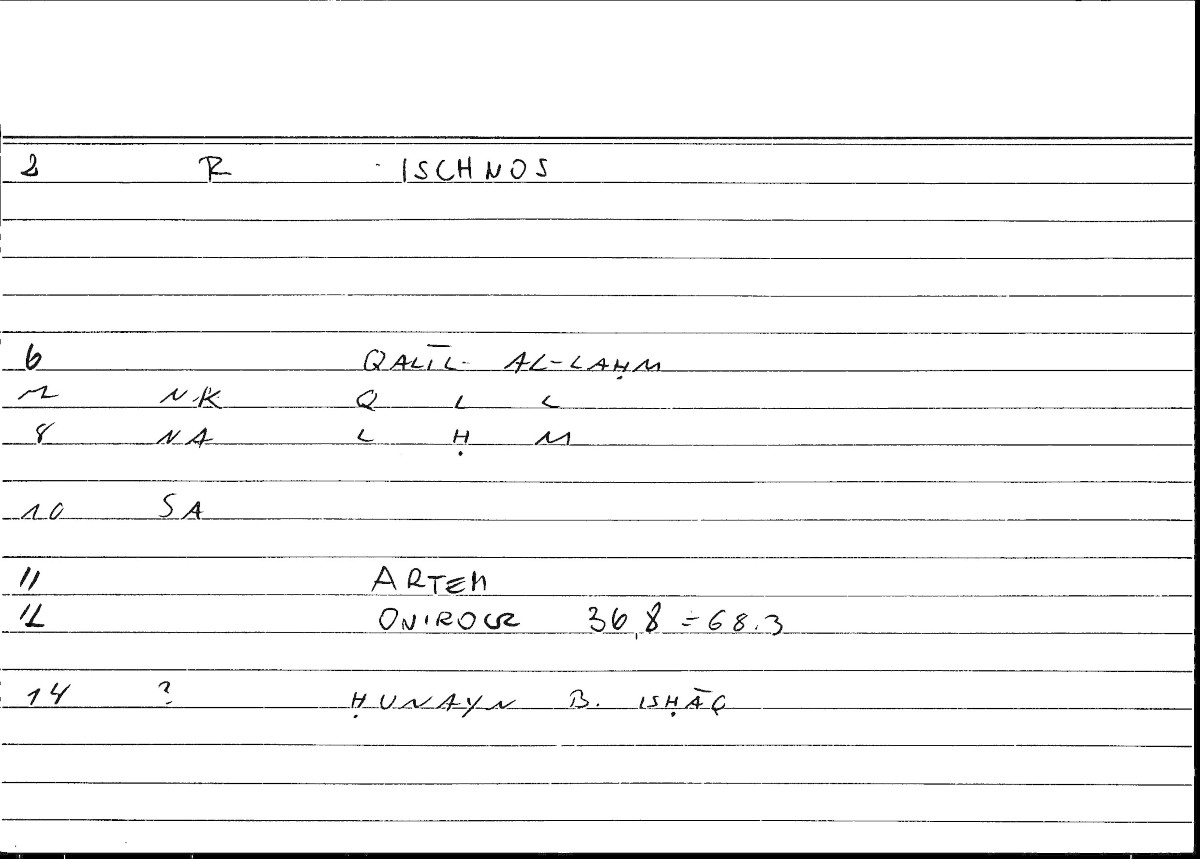 2 R ISCHNOS
6 QALĪL- AL-LAḤM
7 NK Q L L
8 NA L Ḥ M
10 SA
11 ARTEM
12 ONIROCR 36,8 = 68.3
14 ? ḤUNAYN B. ISḤĀQ